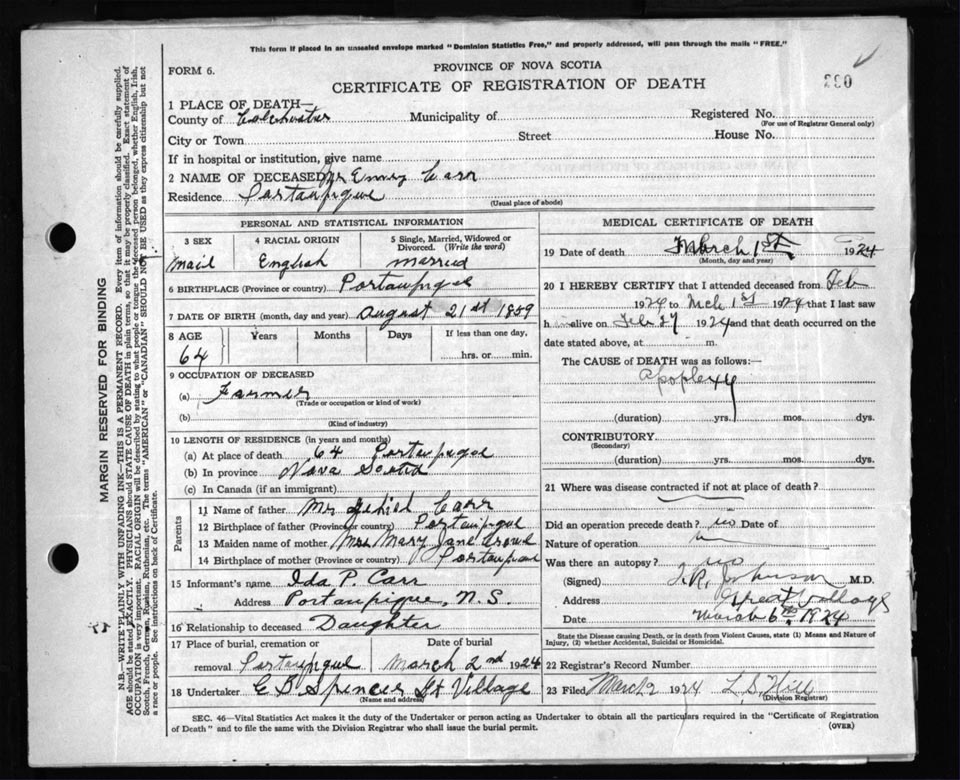 This form if placed in an unsealed envelope marked "Dominion Statistics Free," and properly addressed, will pass through the mails "FREE."
FORM 6.
PROVINCE OF NOVA SCOTIA
CERTIFICATE OF REGISTRATION OF DEATH
1 PLACE OF DEATH—
County of Colchester Municipality of Registered No.
(For use of Registrar General only)
City or Town Street House No.
If in hospital or institution, give name
2 NAME OF DECEASED Carr
Residence Portaupique
(Usual place of abode)
PERSONAL AND STATISTICAL INFORMATION
3 SEX
Mail
4 RACIAL ORIGIN
English
5 Single, Married, Widowed or Divorced. (Write the word)
married
6 BIRTHPLACE (Province or country) Portaupique
7 DATE OF BIRTH (month, day and year) August 21st 1859
8 AGE Years Months Days If less than one day,
64 hrs. or min.
9 OCCUPATION OF DECEASED
(a) Farmer
(Trade or occupation or kind of work)
(b)
(Kind of industry)
10 LENGTH OF RESIDENCE (in years and months)
(a) At place of death 64 Portaupique
(b) In province Nova Scotia
(c) In Canada (if an immigrant)
Parents
11 Name of father Mr Carr
12 Birthplace of father (Province or country) Portaupique
13 Maiden name of mother Mrs Mary Jane Crowe
14 Birthplace of mother (Province or country) Portaupique
15 Informant's name Ida P. Carr
Address Portaupique, N.S.
16 Relationship to deceased Daughter
17 Place of burial, cremation or Date of burial
removal Portaupique March 2nd 1924
18 Undertaker C B Spencer Gt Village
(Name and address)
MEDICAL CERTIFICATE OF DEATH
19 Date of death March 1st 1924
(Month, day and year)
20 I HEREBY CERTIFY that I attended deceased from Feb
1924 to Mch 1st 1924 that I last saw
h alive on Feb 27 1924 and that death occurred on the
date stated above, at m.
The CAUSE of DEATH was as follows:—
Apoplexy
(duration) yrs. mos. dys.
CONTRIBUTORY
(Secondary)
(duration) yrs. mos. dys.
21 Where was disease contracted if not at place of death?
Did an operation precede death? no Date of
Nature of operation
Was there an autopsy? no
(Signed) T.R. Johnson M.D.
Address Great Village
Date March 6th 1924
State the Disease causing Death, or in death from Violent Causes, state (1) Means and Nature of Injury, (2) whether Accidental, Suicidal or Homicidal.
22 Registrar's Record Number
23 Filed March 2 1924 L S Hill
(Division Registrar)
SEC. 46—Vital Statistics Act makes it the duty of the Undertaker or person acting as Undertaker to obtain all the particulars required in the "Certificate of Registration of Death" and to file the same with the Division Registrar who shall issue the burial permit.
(OVER)
MARGIN RESERVED FOR BINDING
N.B.—WRITE PLAINLY WITH UNFADING INK—THIS IS A PERMANENT RECORD. Every item of information should be carefully supplied.
AGE should be stated EXACTLY. PHYSICIANS should STATE CAUSE OF DEATH in plain terms, so that it may be properly classified. Exact statement of
OCCUPATION is very important. RACIAL ORIGIN will be described by stating to what people or tongue the deceased person belonged, whether English, Irish,
Scotch, French, German, Russian, Ruthenian, etc. The terms "AMERICAN" or "CANADIAN" SHOULD NOT BE USED as they express citizenship but not
a race or people. See instructions on back of Certificate.